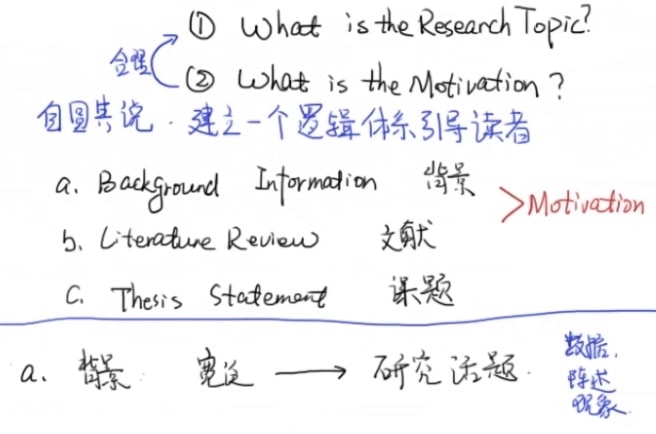 ① What is the Research Topic?
合理
② What is the Motivation?
自圆其说．建立一个逻辑体系引导读者
a. Background Information 背景
>Motivation
b. Literature Review 文献
C. Thesis Statement 课题
a. 背景 宽泛 → 研究话题.
数据.
陈述
现象.